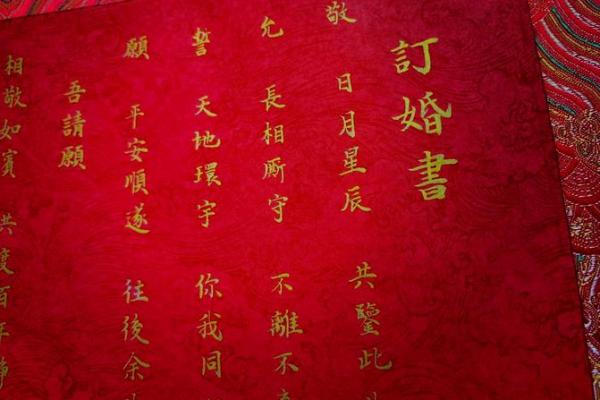 訂婚書
敬 日月星辰 共鑒此
允 長相厮守 不離不
誓 天地環宇 你我同
願 平安順遂 往後余
吾請願
相敬如賓 共度百年